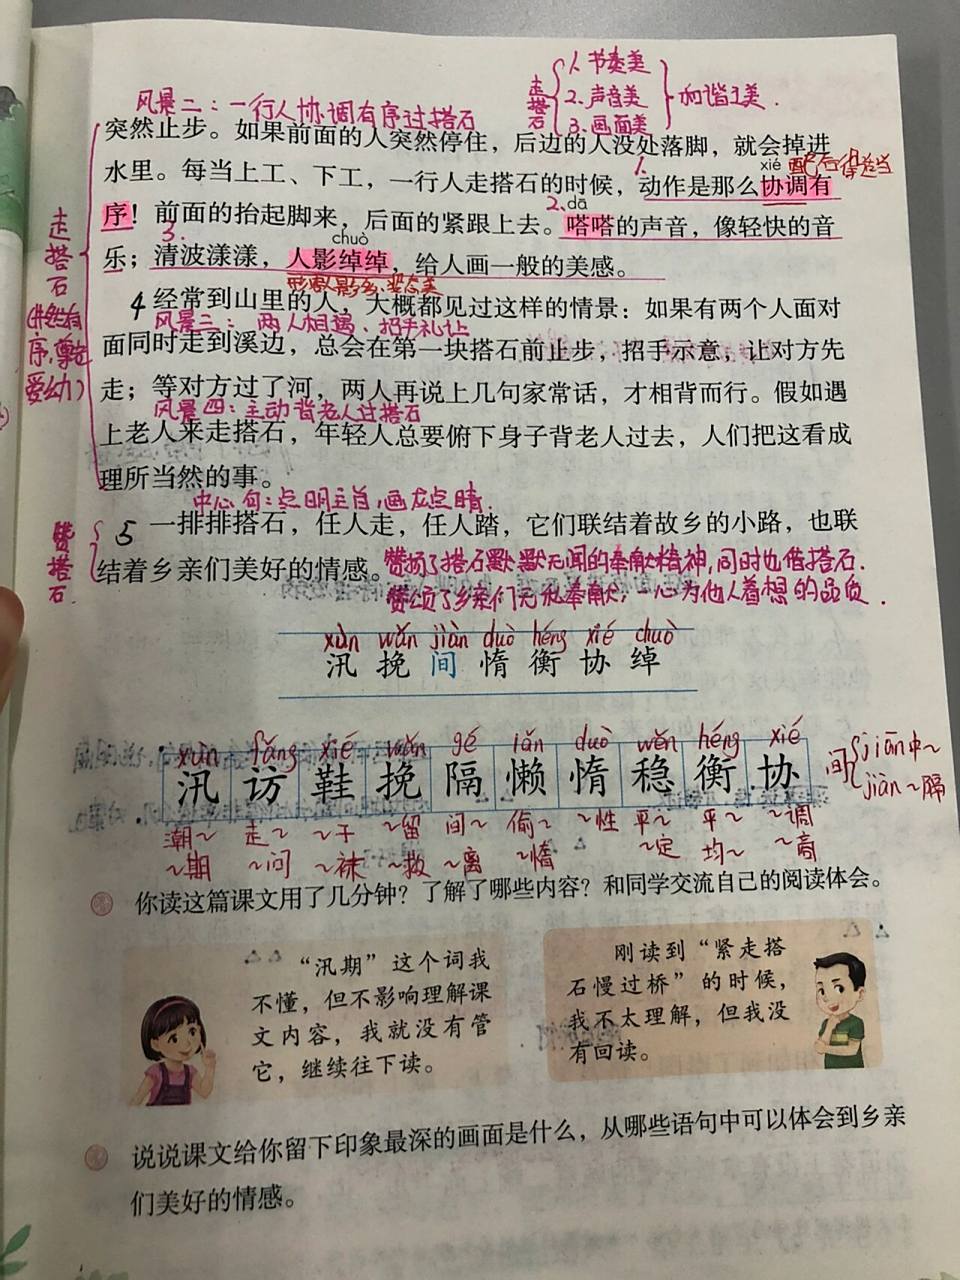 风景二：一行人协调有序过搭石
走搭石
1.节奏美
2.声音美
3.画面美
和谐之美.
突然止步。如果前面的人突然停住，后边的人没处落脚，就会掉进
水里。每当上工、下工，一行人走搭石的时候，动作是那么协调有
1.
xié
序！前面的抬起脚来，后面的紧跟上去。嗒嗒的声音，像轻快的音
2.
dā
3.
乐；清波漾漾，人影绰绰，给人画一般的美感。
chuò
走搭石
4 经常到山里的人，大概都见过这样的情景：如果有两个人面对
风景三：两人相遇、招手礼让
面同时走到溪边，总会在第一块搭石前止步，招手示意，让对方先
走；等对方过了河，两人再说上几句家常话，才相背而行。假如遇
风景四：主动背老人过搭石
上老人来走搭石，年轻人总要俯下身子背老人过去，人们把这看成
理所当然的事。
中心句：点明主旨，画龙点睛.
赞搭石
5 一排排搭石，任人走，任人踏，它们联结着故乡的小路，也联
结着乡亲们美好的情感。
赞扬了搭石默默无闻的奉献精神，同时也借搭石.
赞颂了乡亲们无私奉献，一心为他人着想的品质.
xùn wǎn jiàn duò héng xié chuò
汛 挽 间 惰 衡 协 绰
xùn fǎng xié wǎn gé lǎn duò wěn héng xié
汛 访 鞋 挽 隔 懒 惰 稳 衡 协
间 jiān 中～
jiàn ～隔
潮～ 走～ ～子 ～留 间～ 偷～ ～性 平～ 平～ ～调
～期 ～问 ～袜 ～救 ～离 ～惰 ～定 均～ ～商
你读这篇课文用了几分钟？了解了哪些内容？和同学交流自己的阅读体会。
“汛期”这个词我
不懂，但不影响理解课
文内容，我就没有管
它，继续往下读。
刚读到“紧走搭
石慢过桥”的时候，
我不太理解，但我没
有回读。
说说课文给你留下印象最深的画面是什么，从哪些语句中可以体会到乡亲
们美好的情感。